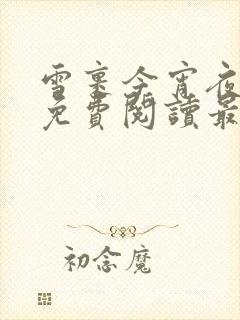 雪裏今宵夜
免費閱讀最
初念魔